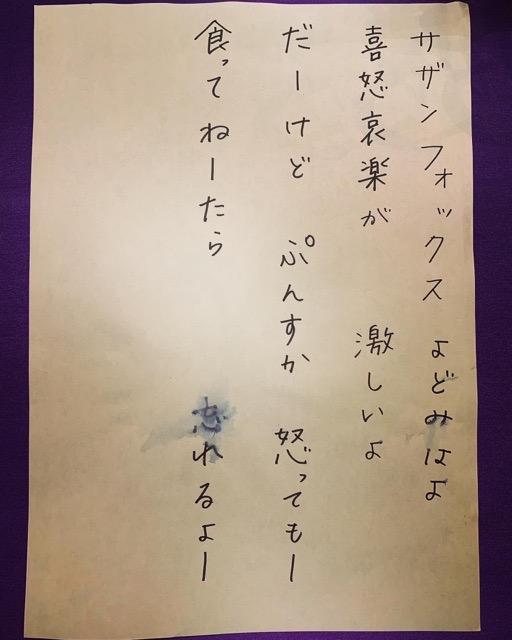 サザンフォックス よどみはよ
喜怒哀楽が 激しいよ
だーけど ぷんすか 怒ってもー
食ってねーたら 忘れるよー